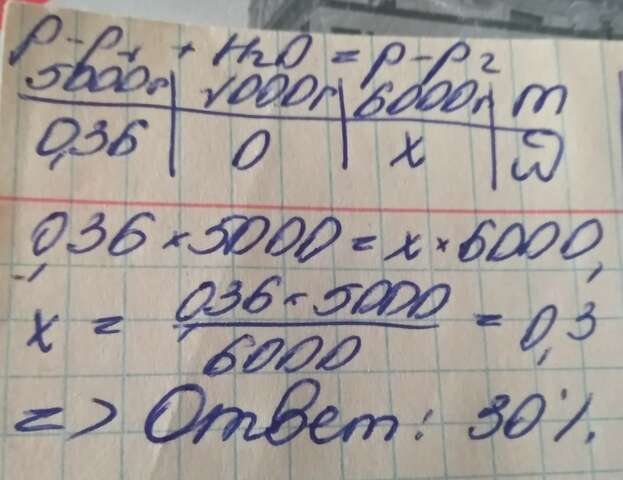 р-р₁ + H₂O = р-р₂
5000г | 1000г | 6000г | m
0,36 | 0 | x | ω
0,36 × 5000 = x × 6000,
x = 0,36 × 5000 / 6000 = 0,3
=> Ответ: 30%.